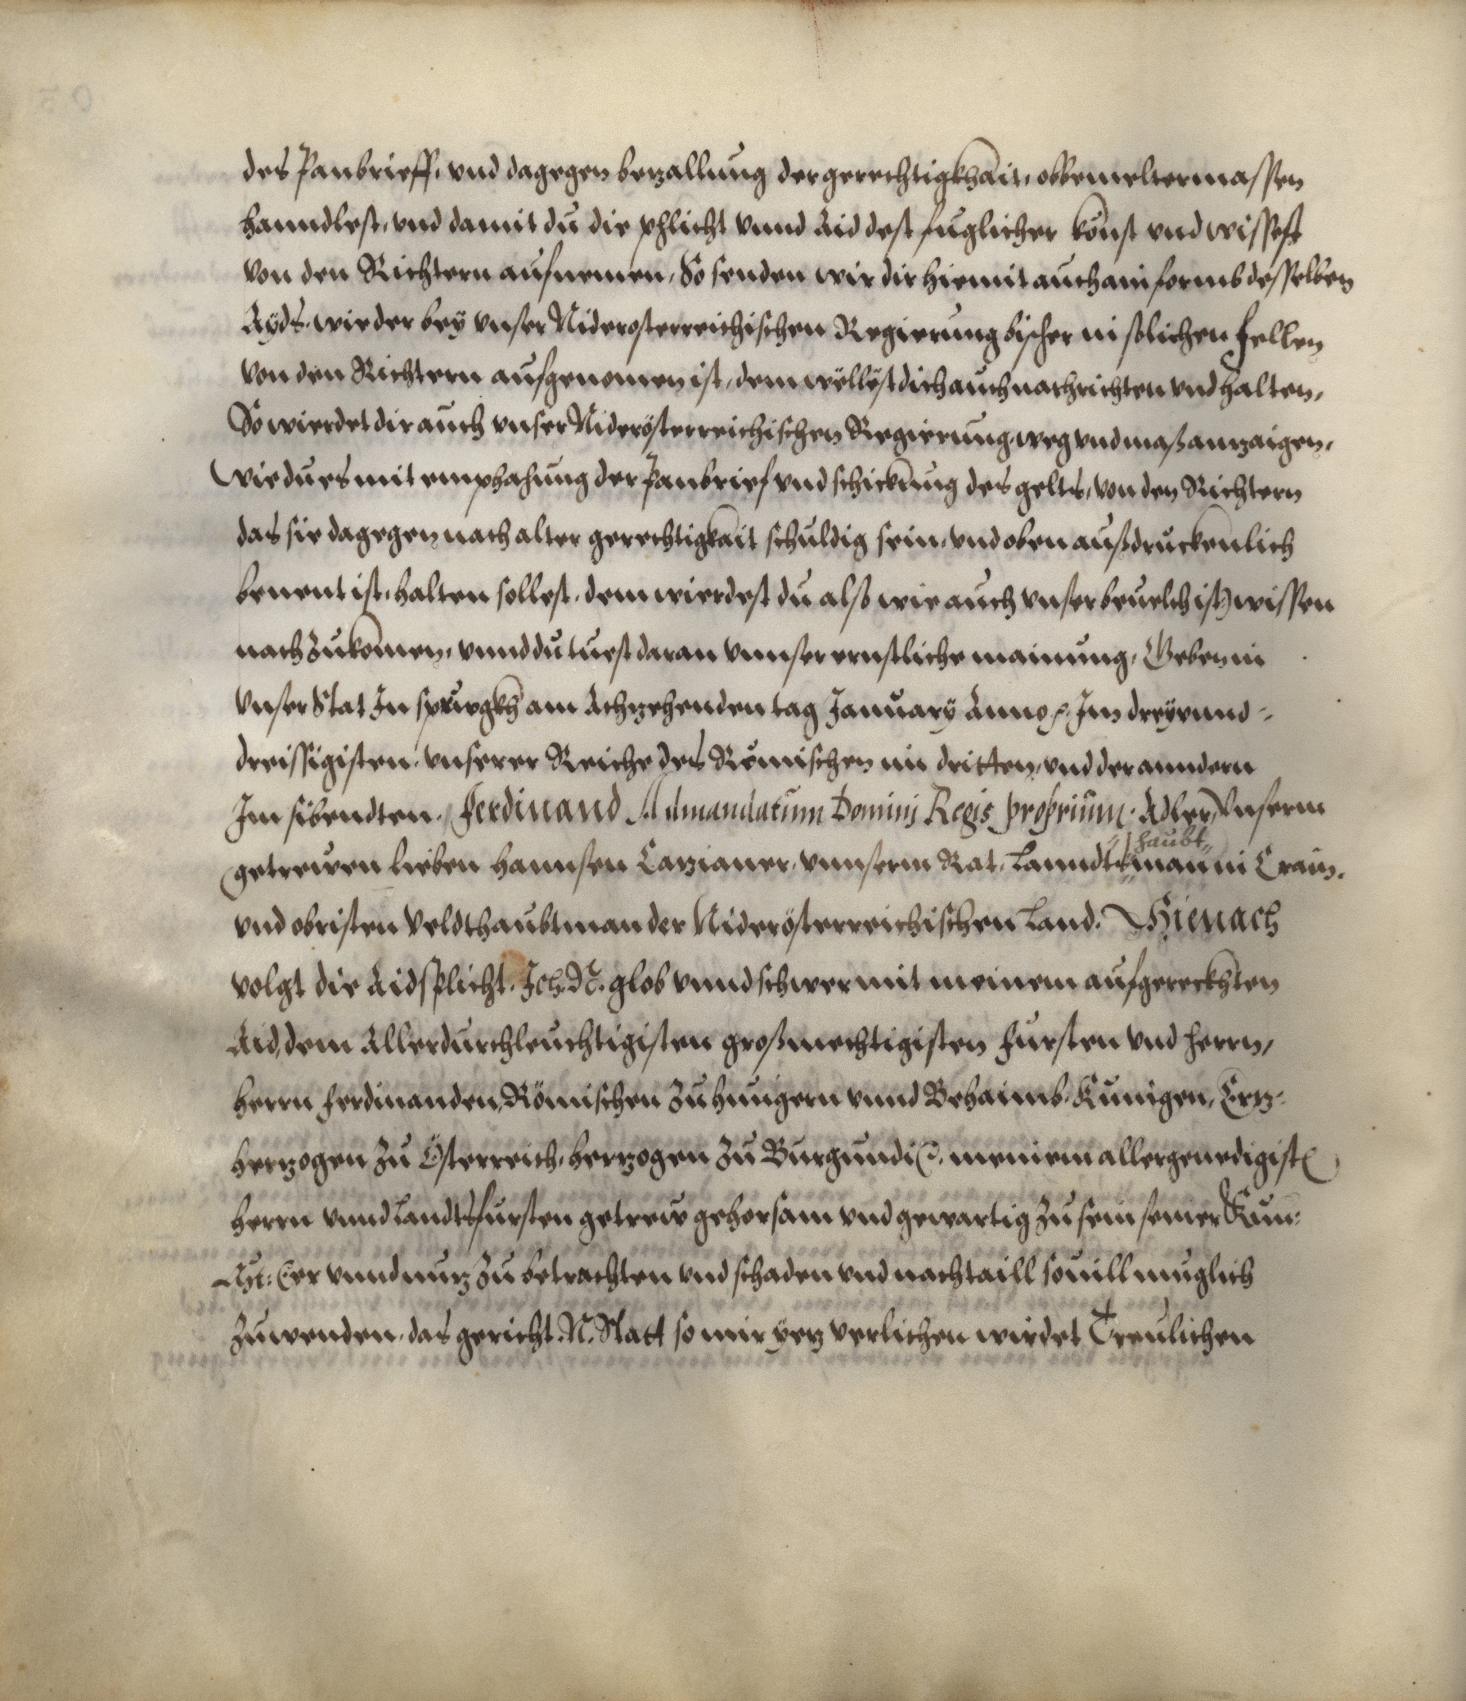 des Panbrieff, vnd dagegen bezallung der gerechtigkhait, obbemeltermassen
hanndlest, vnd damit du die phlicht vnnd Aid dest fuglicher konst vnd wissest
von den Richtern aufnemen, So senden wir dir hiemit auch ain formb desselben
Ayds, wie der bey vnser Niderosterreichischen Regierung bisher in solichen fellen
von den Richtern aufgenomen ist, dem wöllest dich auch nachrichten vnd halten,
So wierdet dir auch vnser Niderösterreichischen Regierung weg vnd maß anzaigen,
wie du es mit emphahung der Panbrief vnd schickung des gelts, von den Richtern
das sie dagegen nach alter gerechtigkait schuldig sein, vnd oben außdruckenlich
benent ist, halten sollest, dem wierdest du also wie auch vnser beuelch ist wissen
nach zukomen, vnnd du tuest daran vnnser ernstliche mainung, Geben in
vnser Stat Insprugkh am Achzehenden tag January Anno im dreyvnnd-
dreissigisten, vnserer Reiche des Römischen im dritten vnd der anndern
Im sibendten. Ferdinand Admandatum Domini Regis proprium. Adler, Vnserm
getrewen lieben Hannsen Cazianer, vnnserm Rat, Lanndts haubt man in Crain,
vnd obristen Veldthaubtman der Niderösterreichischen Land. Hienach
volgt die Aidsplicht. Ich. N. glob vnnd schwer mit meinem aufgereckhten
Aid, dem Allerdurchleuchtigisten großmechtigisten Fursten vnd Herrn,
Herrn Ferdinanden, Römischen zu Hungern vnnd Behaimb Kunigen, Ertz-
Hertzogen zu Österreich, Hertzogen zu Burgundi meinem allergenedigist
Herrn vnnd Landtsfursten getrew gehorsam vnd gewartig zu sein seiner Kun:
Mt: Eer vnnd nuz zu betrachten vnd schaden vnd nachtaill souill muglich
zuwenden, das gericht. N. Statt so mir yez verlichen wirdet Treulichen